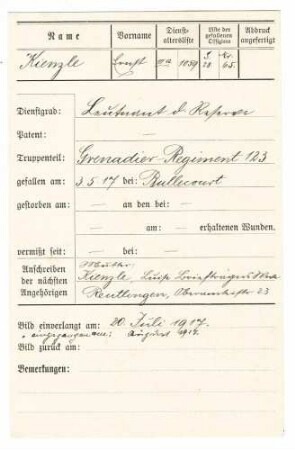 Name Vorname Dienst-altersliste Liste der gefallenen Offiziere Abdruck angefertigt
Kienzle Ernst 1089 S. 20 Nr. 65.
Dienstgrad: Leutnant d. Reserve
Patent: —
Truppenteil: Grenadier-Regiment 123
gefallen am: 3.5.17 bei: Bullecourt
gestorben am: — an den bei: —
— am: — erhaltenen Wunden.
vermißt seit: — bei: —
Anschreiben der nächsten Angehörigen
Mutter:
Kienzle, Luise
Reutlingen, 23
Bild einverlangt am: 20. Juli 1917.
" eingegangen am: August 1917.
Bild zurück am:
Bemerkungen: